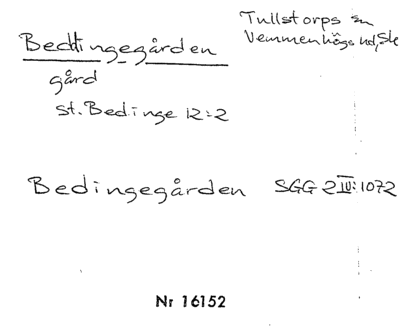 Beddingegården
Tullstorps sn
Vemmenhögs hd, Sk
gård
st. Bedinge 12:2
Bedingegården SGG 2 IV: 1072
Nr 16152